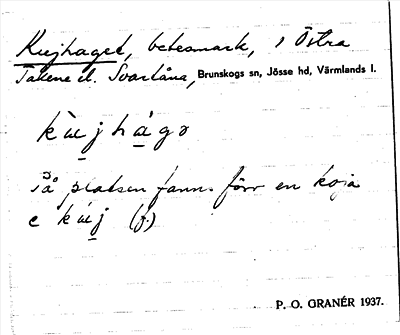 Kujhaget, betesmark, i Östra
Takene el. Svartåna, Brunskogs sn, Jösse hd, Värmlands l.
kùjhàgə
På platsen fanns förr en koja
e kúj (f.)
P. O. GRANÉR 1937.